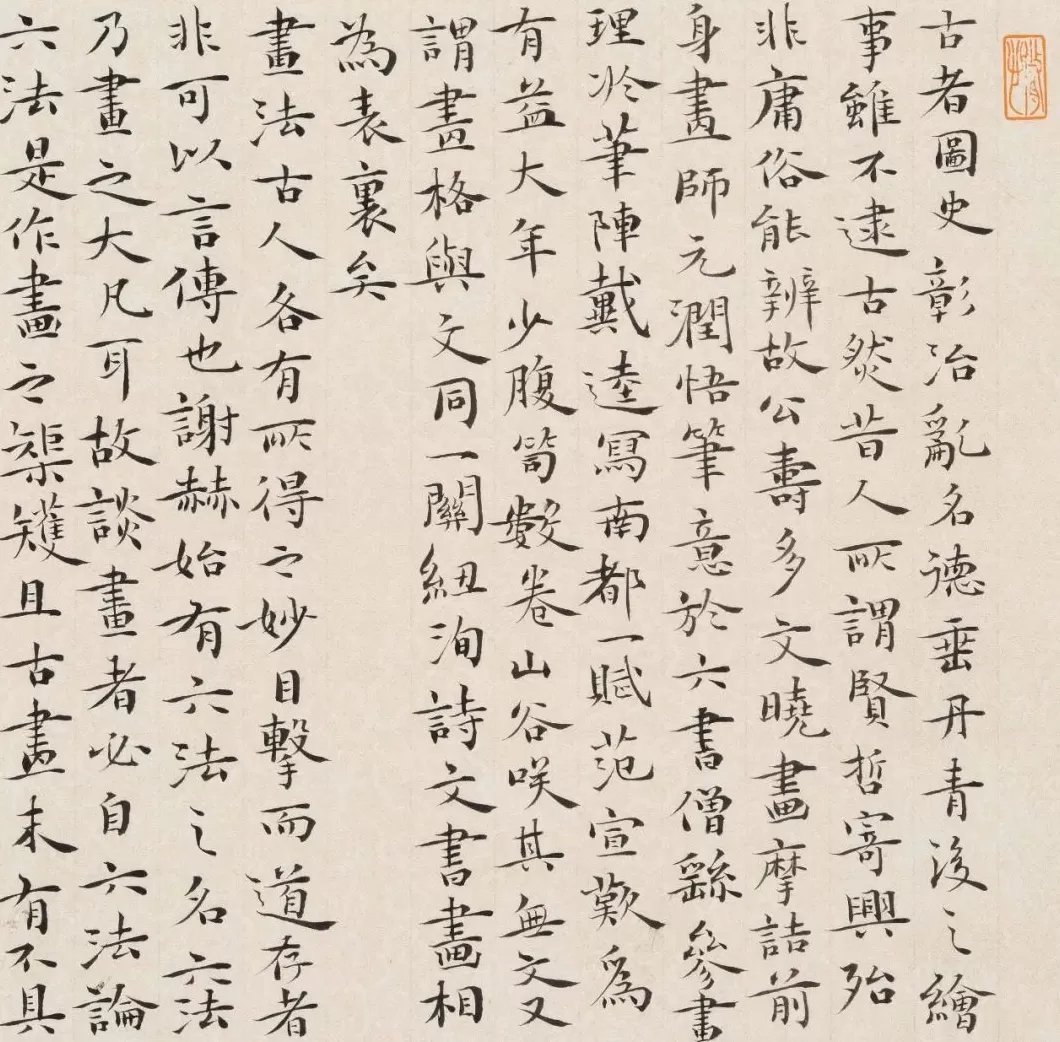 古者圖史彰治亂名德垂丹青後之繪
事雖不逮古然昔人所謂賢哲寄興殆
非庸俗能辨故公壽多文曉畫摩詰前
身畫師元潤悟筆意於六書僧繇參畫
理於筆陣戴逵寫南都一賦范宣歎為
有益大年少腹笥數卷山谷咲其無文又
謂畫格與文同一關紐洵詩文書畫相
為表裏矣
畫法古人各有所得之妙目擊而道存者
非可以言傳也謝赫始有六法之名六法
乃畫之大凡耳故談畫者必自六法論
六法是作畫之榘矱且古畫未有不具